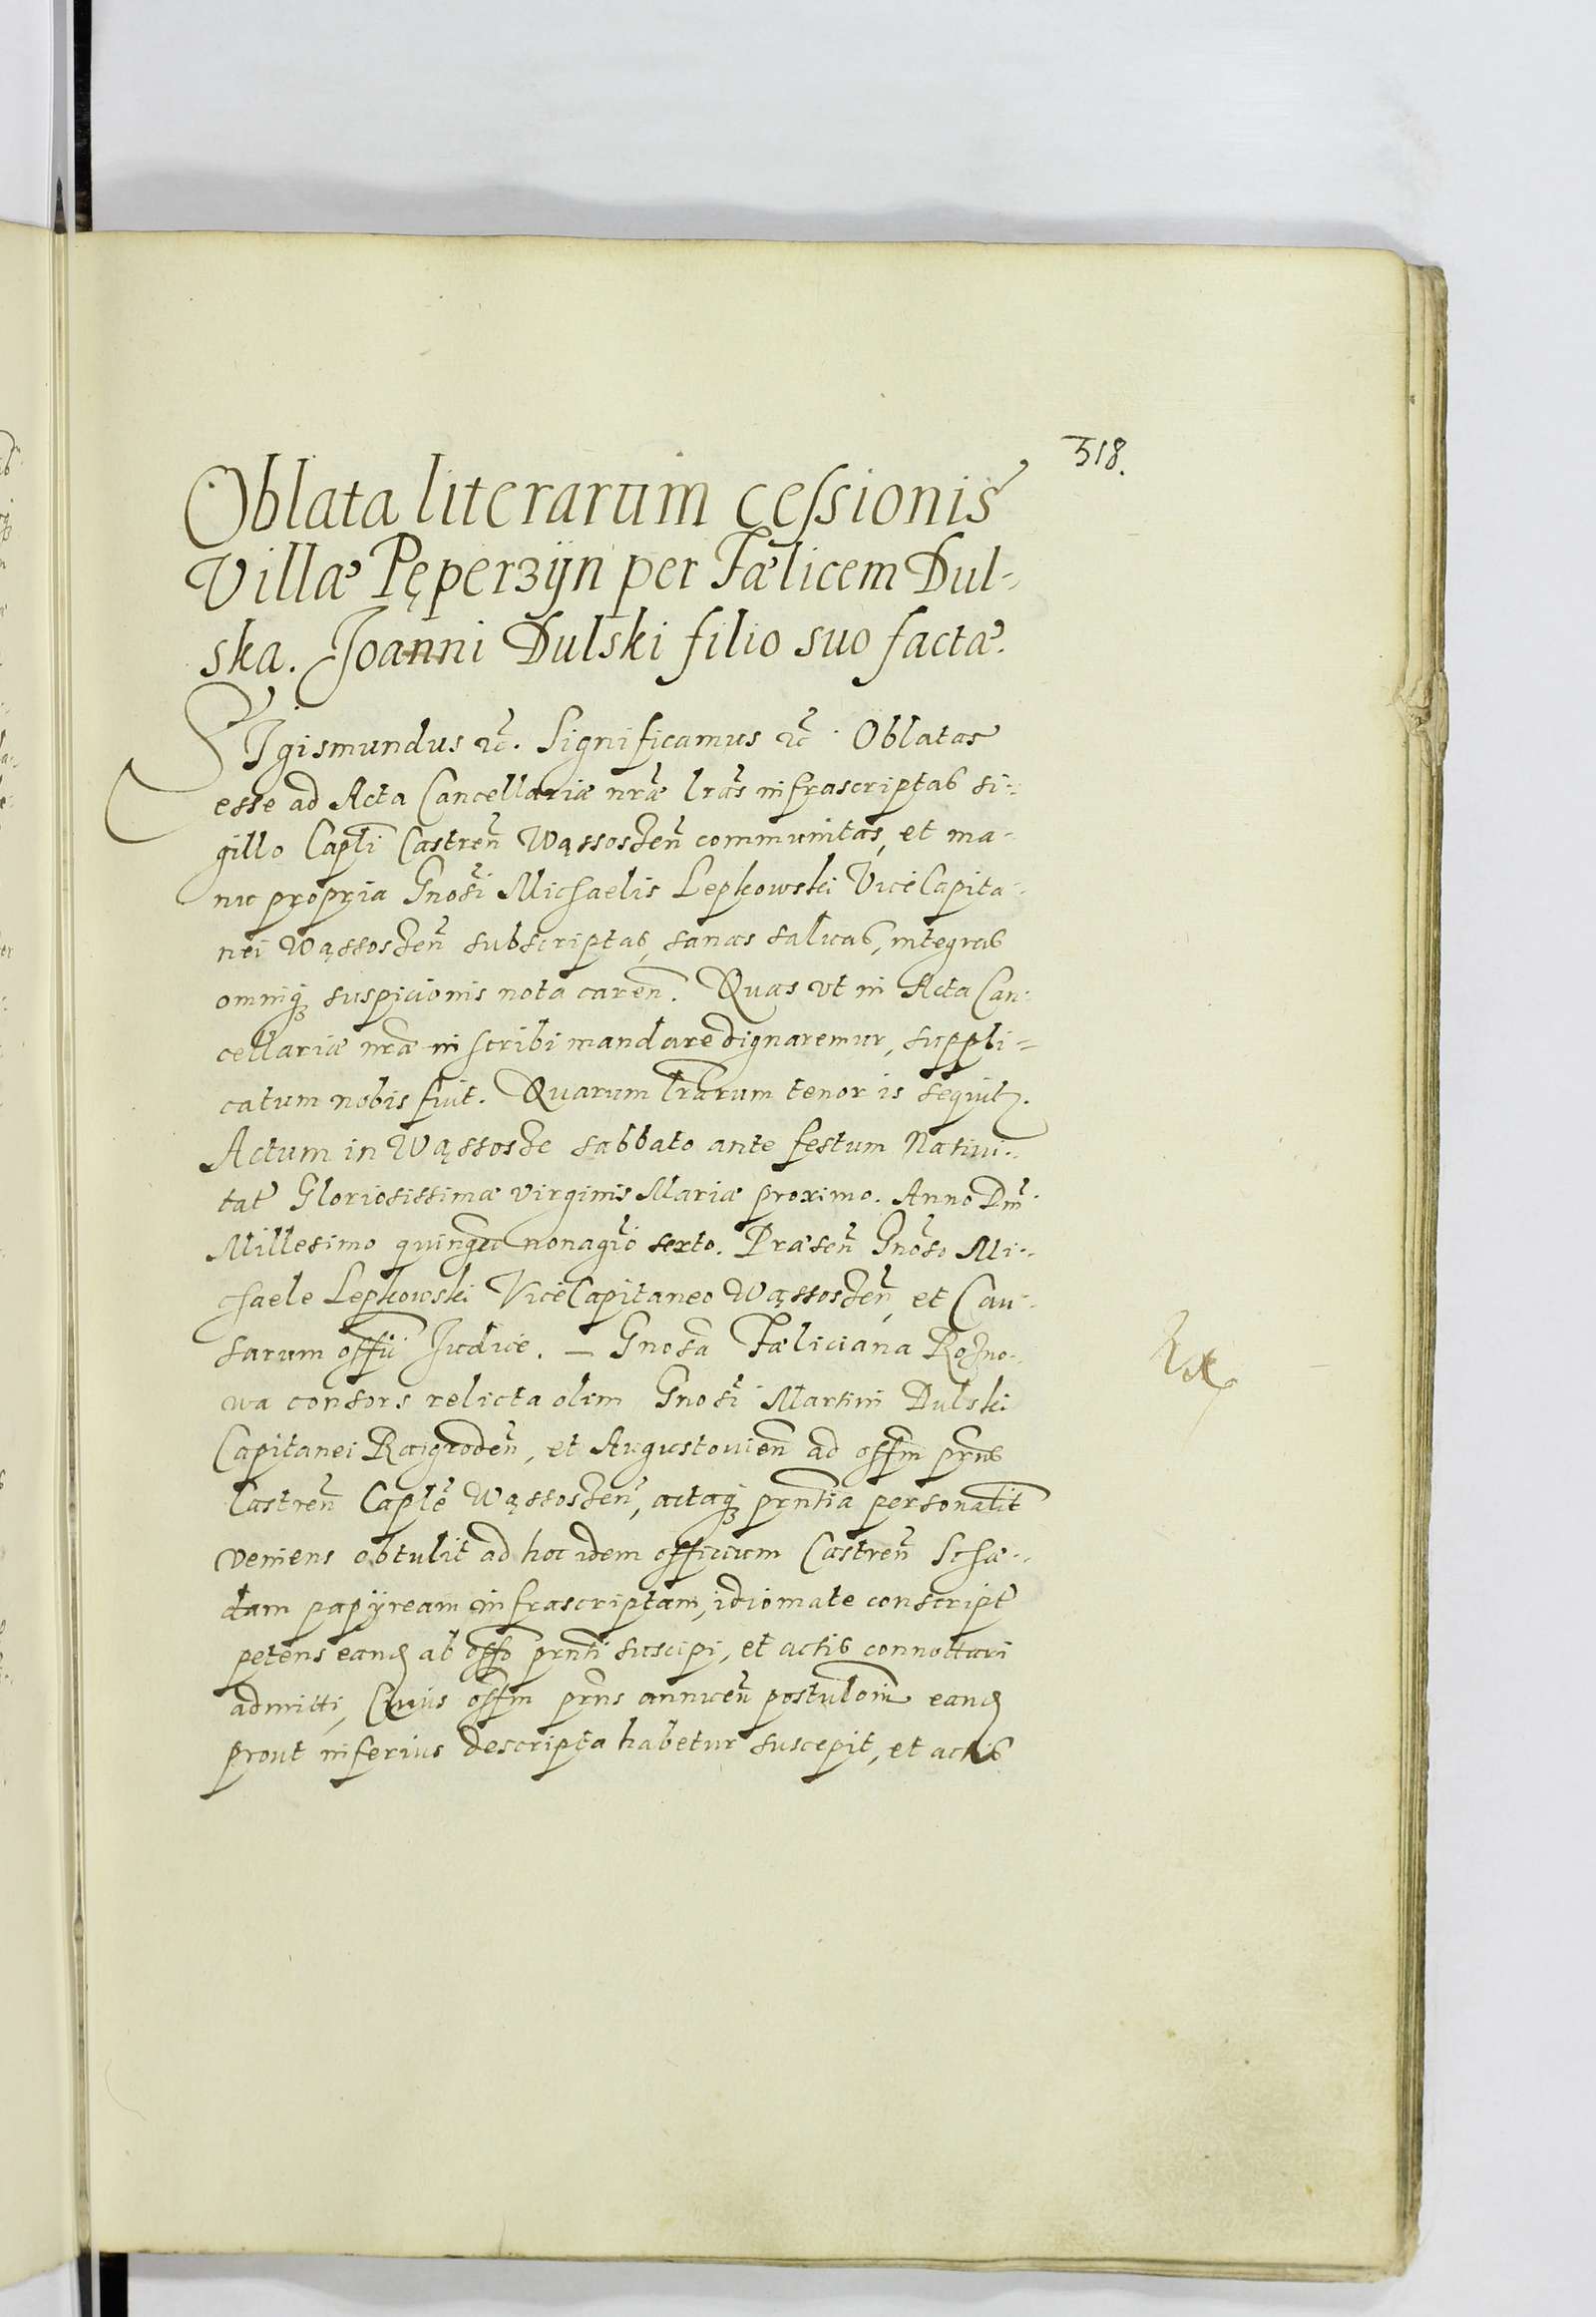 518.
Oblata literarum cessionis
Villæ Pęperzÿn per Fælicem Dul-
ska. Joanni Dulski filio suo factæ.
SIgismundus etc. Significamus etc. Oblatas
esse ad Acta Cancellariæ nræ lras infrascriptas si-
gillo Capli Castren Wąssoshen communitas, et ma-
nu propria Gnosi Michaelis Lepkowski ViceCapita-
nei Wąssoshen subscriptas, sanas saluas, integras
omniq; suspicionis nota caren. Quas vt in Acta Can-
cellariæ nræ inscribi mandare dignaremur, suppli-
catum nobis fuit. Quarum lrarum tenor is sequitr.
Actum in Wąssosze sabbato ante festum Natiui-
tat Gloriosissimæ virginis Mariæ proximo. Anno Dni
Millesimo quingen nonagio sexto. Præsen Gnoso Mi-
chaele Lepkowski ViceCapitaneo Wąssoshen, et Cau-
sarum offii Iudice. – Gnosa Fæliciana Rosno-
wa consors relicta olim Gnosi Martini Dulski
Capitanei Raigroden, et Augustouien ad offm prns
Castren Caple Wąssoshen, actaq; prntia personalit
veniens obtulit ad hoc idem officium Castren Schæ-
dam papÿream infrascriptam, idiomate conscript
petens eand ab offo prnti suscipi, et actis connottari
admitti, Cuius offm prns annuen postulōni eand
prout inferius descripta habetur suscepit, et actis